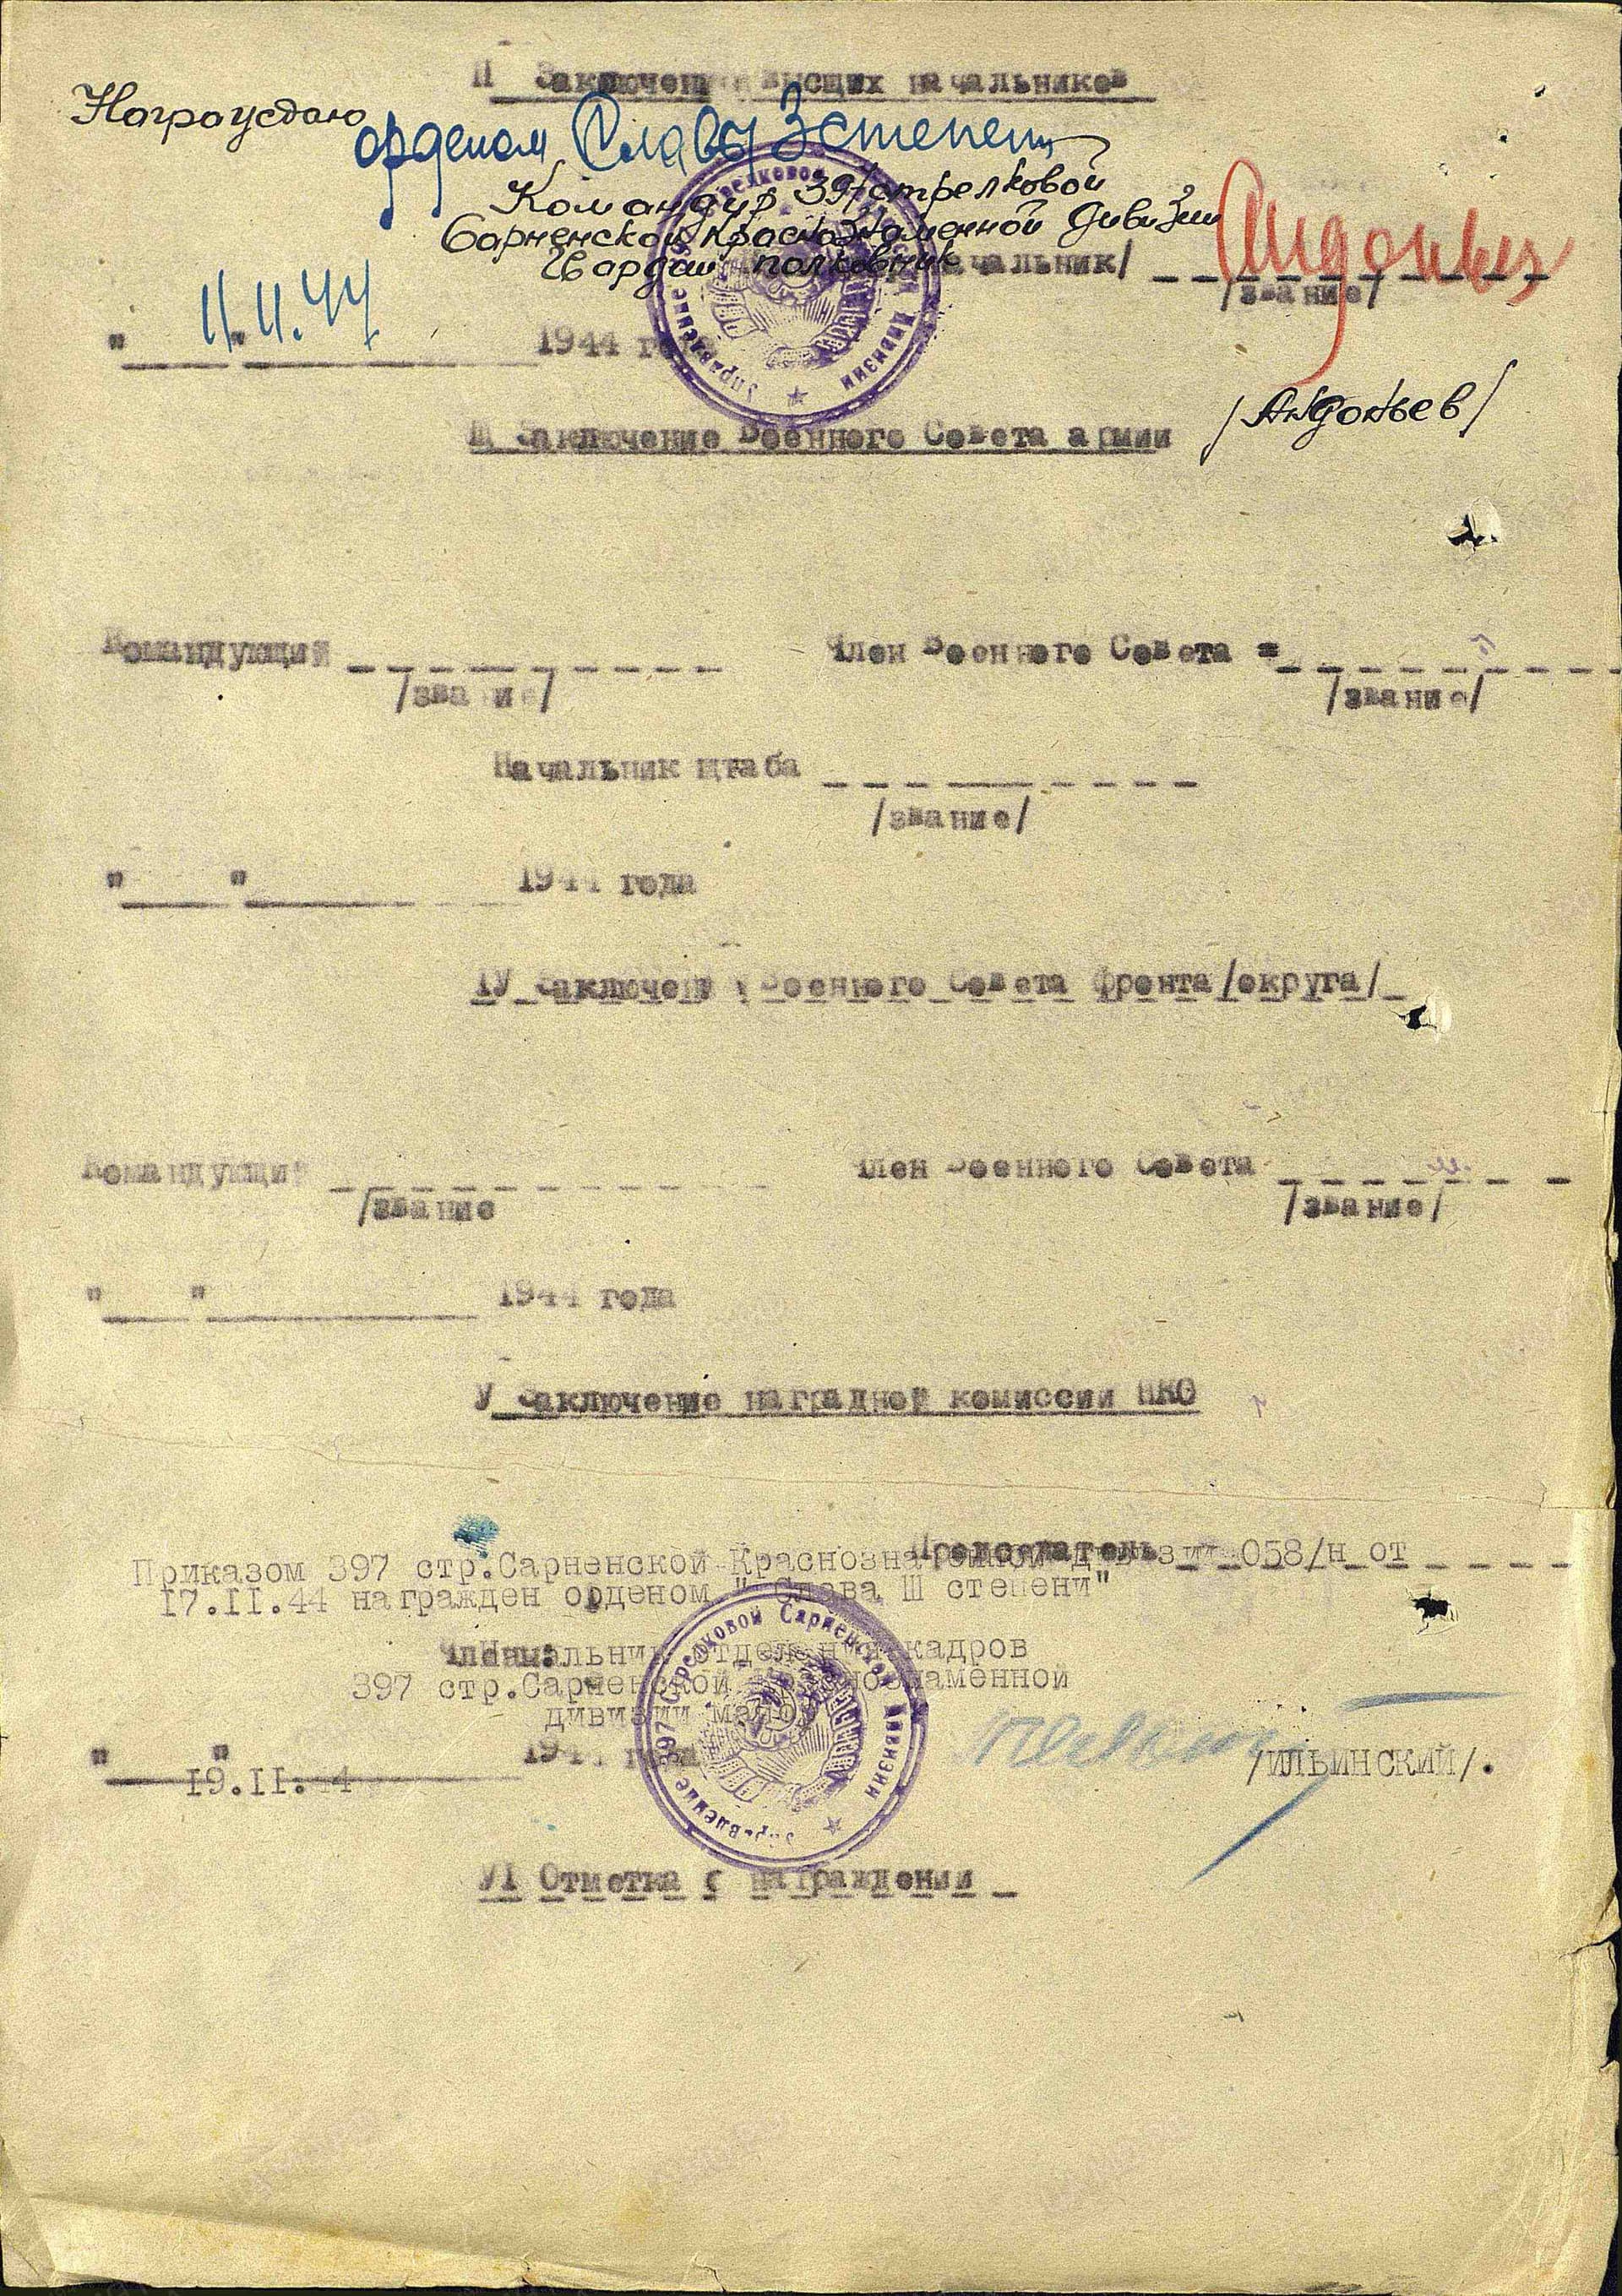 II Заключение высщих начальников
Награждаю
орденом Славы 3 степени
Командир 397 стрелковой
Сарненской Краснознаменной дивизии
Гвардии полковник
начальник/ _ _ _ _ _ _ _ _
/звание/
11.11.44
" " 1944 года
/Андоньев/
III Заключение Военного Совета армии
Командующий _ _ _ _ _ _ _ _ Член Военного Совета = _ _ _ _ _ _ _ _
/звание/ /звание/
Начальник штаба _ _ _ _ _ _ _ _
/звание/
"____"__________ 1944 года
IУ Заключение Военного Совета фронта/округа/
Командующий _ _ _ _ _ _ _ _ Член Военного Совета _ _ _ _ _ _ _
/звание /звание/
"____"__________ 1944 года
У Заключение наградной комиссии НКО
Председатель
Приказом 397 стр.Сарненской Краснознаменной дивизии 058/н от
17.II.44 награжден орденом " Слава III степени"
Члены:
Начальник отделения кадров
397 стр.Сарненской Краснознаменной
дивизии майор
"____"__________ 1944 года
19.II. 4
/ИЛЬИНСКИЙ/.
Управление 397 Стрелковой Сарненской Дивизии
УI Отметка о награждении